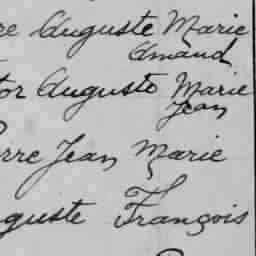 re Auguste Marie
Amand
tor Auguste Marie
Jean
erre Jean Marie
guste François